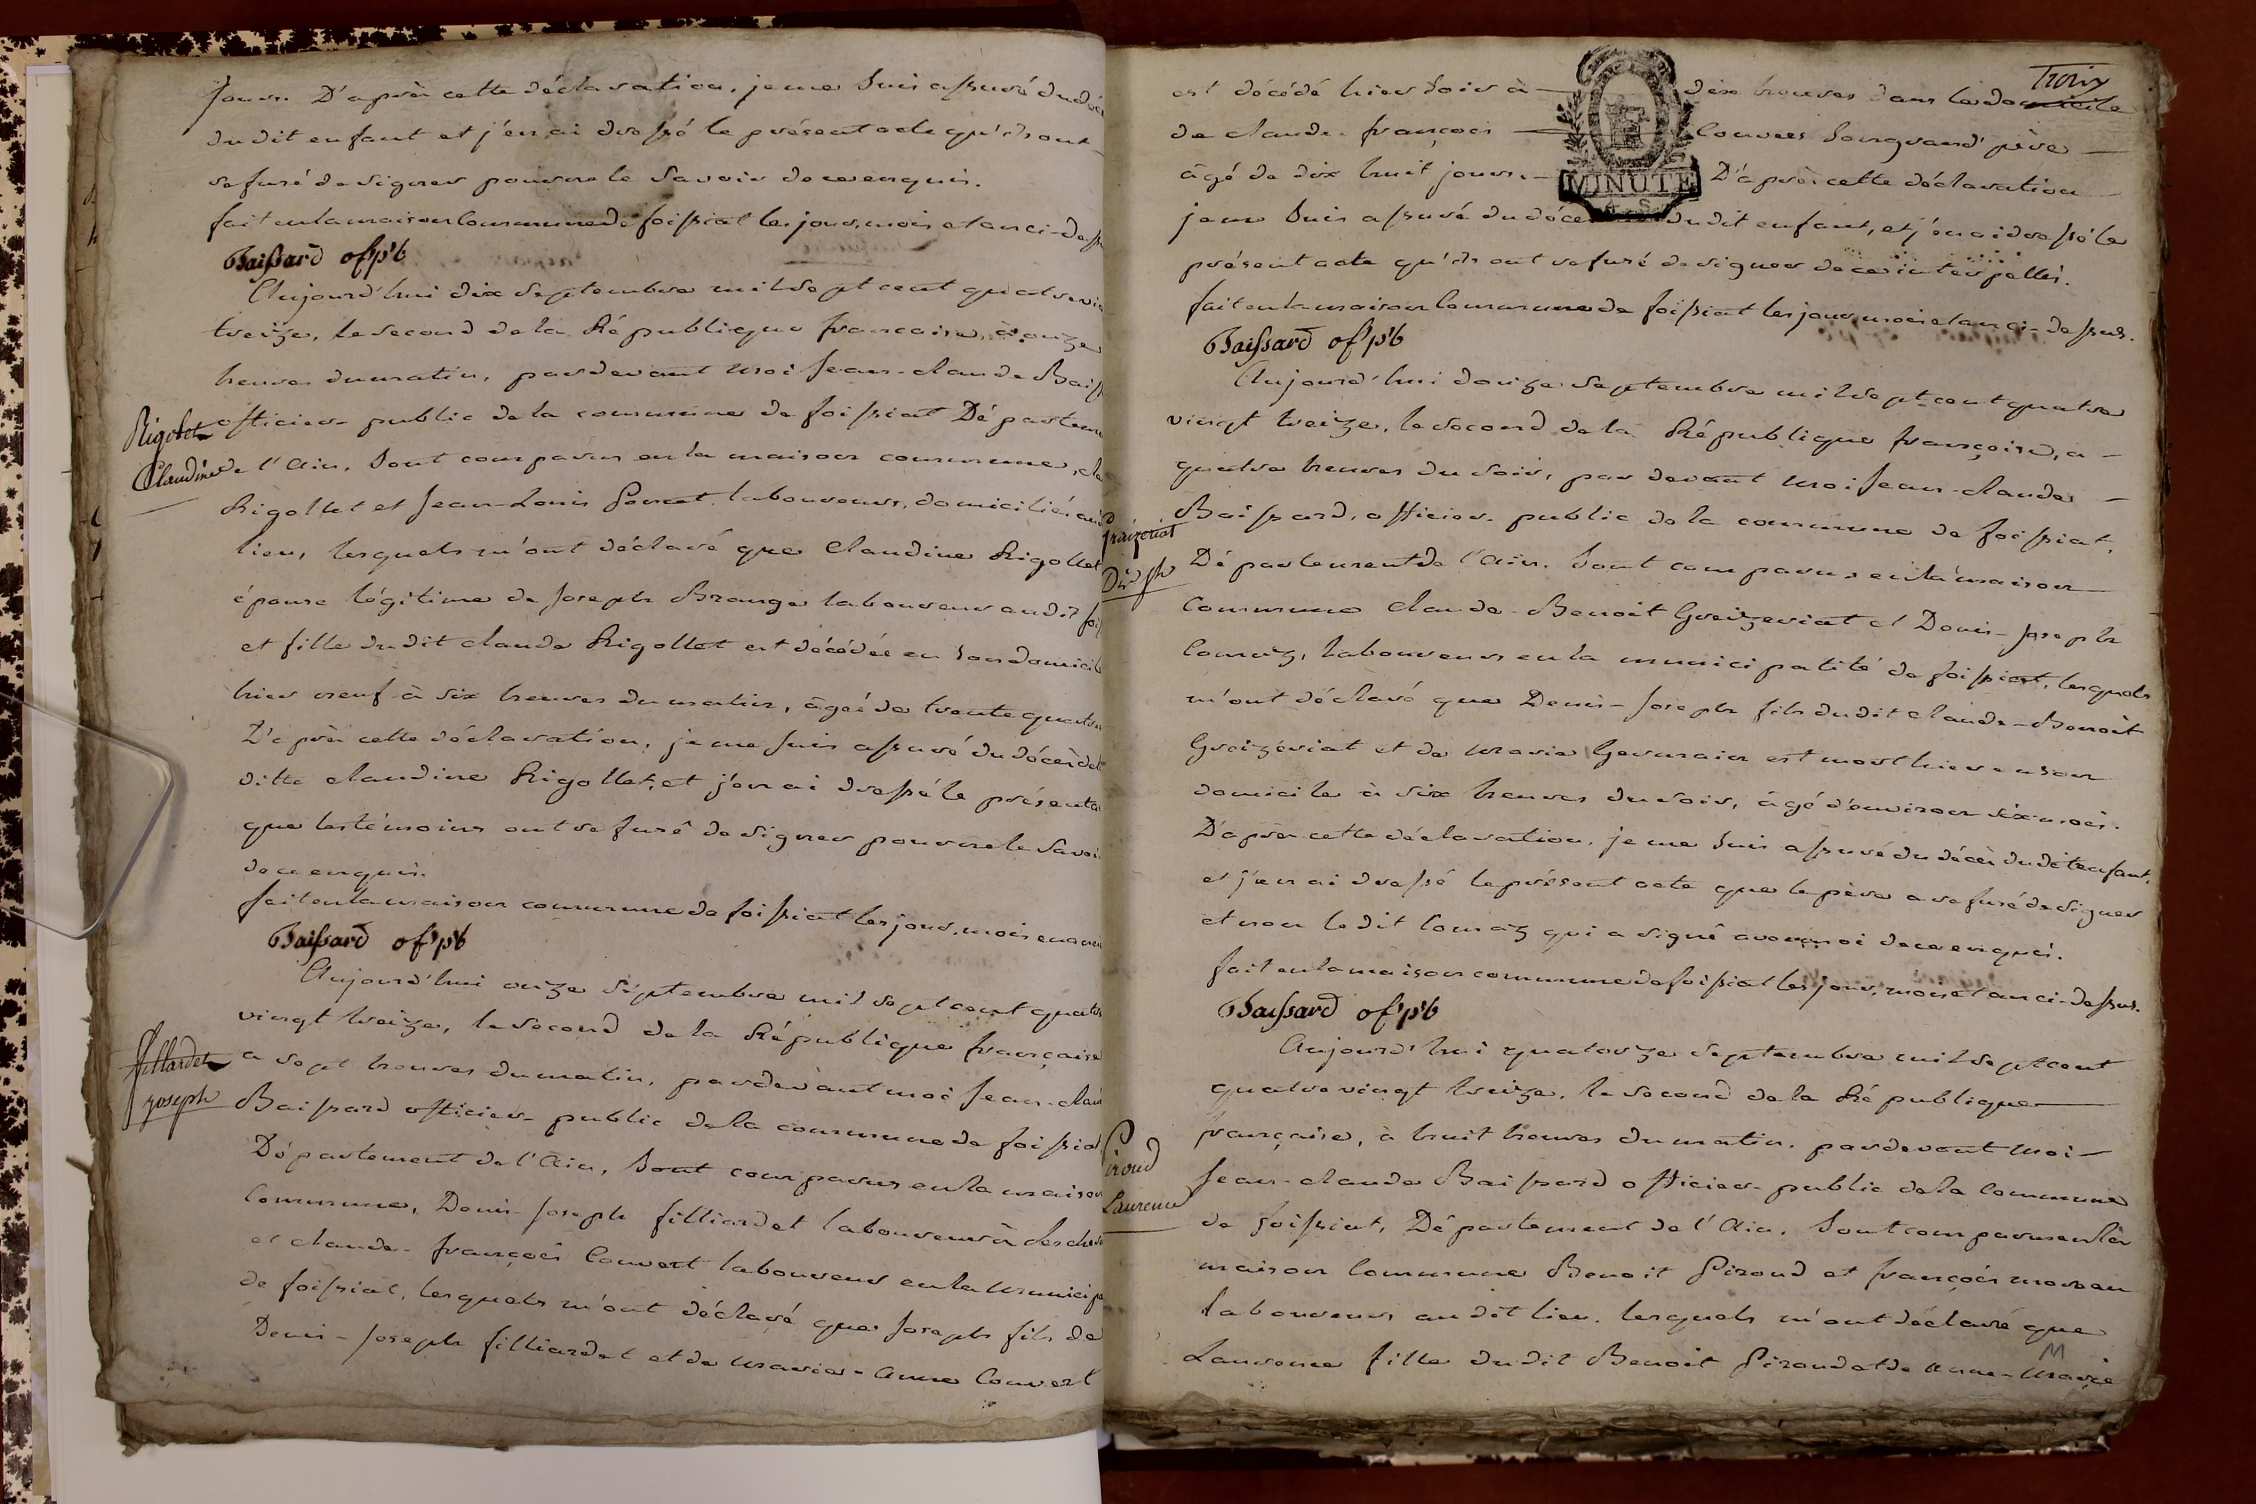 jours. D'après cette déclaration, je me suis assuré du décè
du dit enfant et j'en ai dressé le présent acte qu'ils ont
refusé de signer pour ne le savoir de ce enquis.
fait en la maison Commune de foissiat les jour, mois et an ci-dess
Baissard off. pb
Aujourd'hui dix Septembre mil sept cent quatre vin
treize, le second de la République francaise, à onze
heures du matin, pardevant moi Jean-claude Baiss
Rigolet
officier public de la commune de foissiat Départem
Claudine
de l'Ain, sont comparus en la maison commune, cla
Rigollet et Jean-Louis Perret laboureurs, domiciliés au
lieu, lesquels m'ont déclaré que Claudine Rigollet
épouse légitime de Joseph Brange laboureur audit foi
et fille du dit claude Rigollet est décédée en son domicil
hier neuf à six heures du matin, âgée de trente quatre
D'après cette déclaration, je me suis assuré du décès de
ditte claudine Rigollet, et j'en ai dressé le présent a
que les témoins ont refusé de signer pour ne le savoi
de ce enquis.
fait en la maison commune de foissiat les jour, mois
Baissard off. pb
Aujourd'hui onze Septembre mil sept cent quatre
vingt treize, le second de la République française
fillardet
a sept heures du matin, pardevant moi Jean-clau
joseph
Baissard officier public de la commune de foissiat
Département de l'Ain, sont comparus en la maison
Commune, Denis-Joseph filliardet laboureur à
et claude-françois Convert laboureur en la municip
de foissiat, lesquels m'ont déclaré que Joseph fils de
Denis-Joseph filliardet et de marie-anne Convert
Trois
est décédé hier soir à dix heures dans le domicile
de claude françois Convers son grand'père
âgé de dix huit jours. D'après cette déclaration
MINUTE
je me suis assuré du décè dudit enfant, et j'en ai dressé le
présent acte qu'ils ont refusé de signer de ce interpellés.
fait en la maison Commune de foissiat les jour mois et an ci-dessus.
Baissard off. pb
Aujourd'hui douze Septembre mil sept-cent quatre
vingt treize, le second de la République françoise, a
quatre heures du soir, par devant moi Jean-claude
Baissard, officier public de la commune de foissiat,
Graizeriat
Département de l'Ain. Sont comparus en la maison
Dis jph
Commune claude-Benoit Greizeriat et Denis-Joseph
Convuz, laboureurs en la municipalité de foissiat, lesquels
m'ont déclaré que Denis-Joseph fils dudit claude-Benoit
Greizériat et de marie Germain est mort hier en son
domicile à six heures du soir, âgé d'environ six mois.
D'après cette déclaration, je me suis assuré du décès dudit enfant,
et j'en ai dressé le présent acte que le père a refusé de signer
et non le dit qui a signé avec moi de ce enquis.
fait en la maison commune de foissiat les jour, mois et an ci-dessus.
Baissard off. pb
Aujourd'hui quatorze Septembre mil sept cent
quatre vingt treize, le second de la République
Piroud
française, à huit heures du matin, pardevant moi
Jean-claude Baissard officier public de la Commune
Laurence
de foissiat, Département de l'Ain, Sont comparus en la
maison Commune Benoit Piroud et françois moreau
laboureurs audit lieu, lesquels m'ont déclaré que
Laurence fille dudit Benoit Piroud et de anne-marie
M